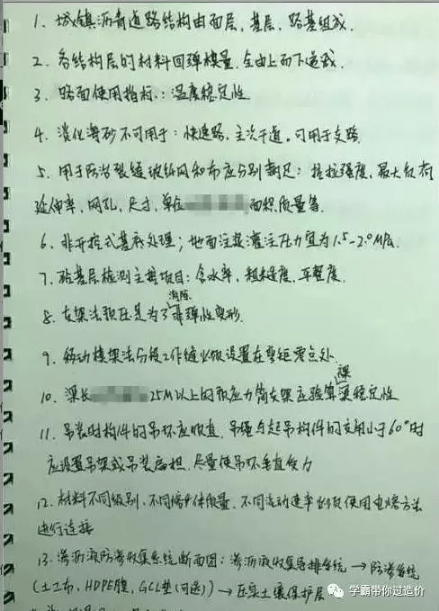 1. 城镇沥青道路结构由面层、基层、路基组成.
2. 各结构层的材料回弹模量.全由上而下递减.
3. 路面使用指标:温度稳定性
4. 淡化海砂不可用于:快速路.主次干道.可用于支路.
5. 用于防治裂缝玻纤网和布应分别满足:抗拉强度、最大负荷
延伸率、网孔、尺寸、单位 面积质量等.
6. 非开挖式基底处理;地面注浆灌注压力宜为1.5-2.0MPa.
7. 砼基层检测主控项目:含水率、粗糙度、平整度.
8. 支架法预压是为了消除非弹性变形.
9. 移动模架法分段工作缝必须设置在弯矩零点处.
10. 梁长 25M以上的预应力简支梁应验算裸梁稳定性
11. 吊装时构件的吊环应顺直、吊绳与起吊构件的交角小于60°时
应设置吊架或吊装扁担.尽量使吊环垂直受力
12. 材料不同级别、不同熔体质量、不同流动速率的须使用电熔方法
进行连接
13. 渗沥液防渗收集系统断面图:渗沥液收集导排系统→防渗系统
(土工布、HDPE膜、GCL垫(可选))→压实土壤保护层
学霸带你过造价